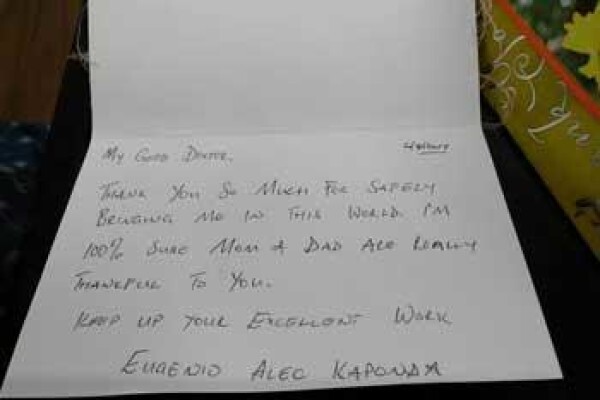 My Good Doctor.
Thank You So Much For Safely
Bringing Me In This World. I'm
100% Sure Mom & Dad Are Really
Thankful To You.
Keep up your Excellent Work
Eugenio Alec Kaponda
Thank